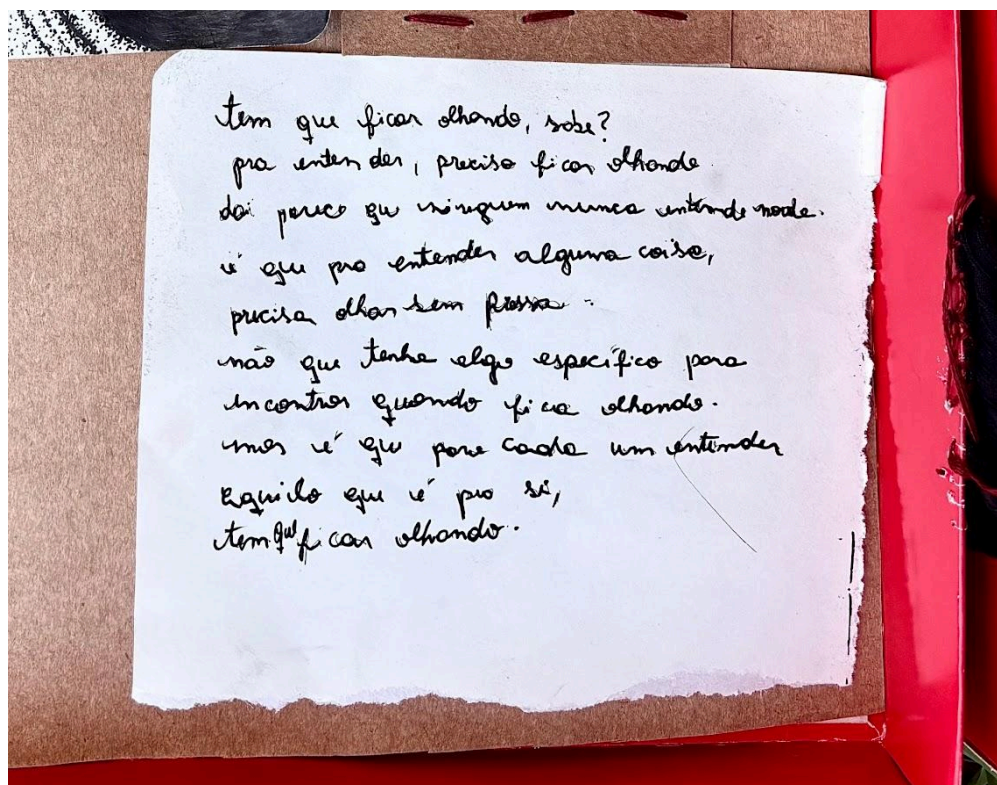 tem que ficar olhando, sabe?
pra entender, precisa ficar olhando
daí parece que ninguem nunca entende nada.
é que pra entender alguma coisa,
precisa olhar sem pressa.
não que tenha algo específico para
encontrar quando fica olhando.
mas é que para cada um entender
aquilo que é pra si,
tem que ficar olhando.